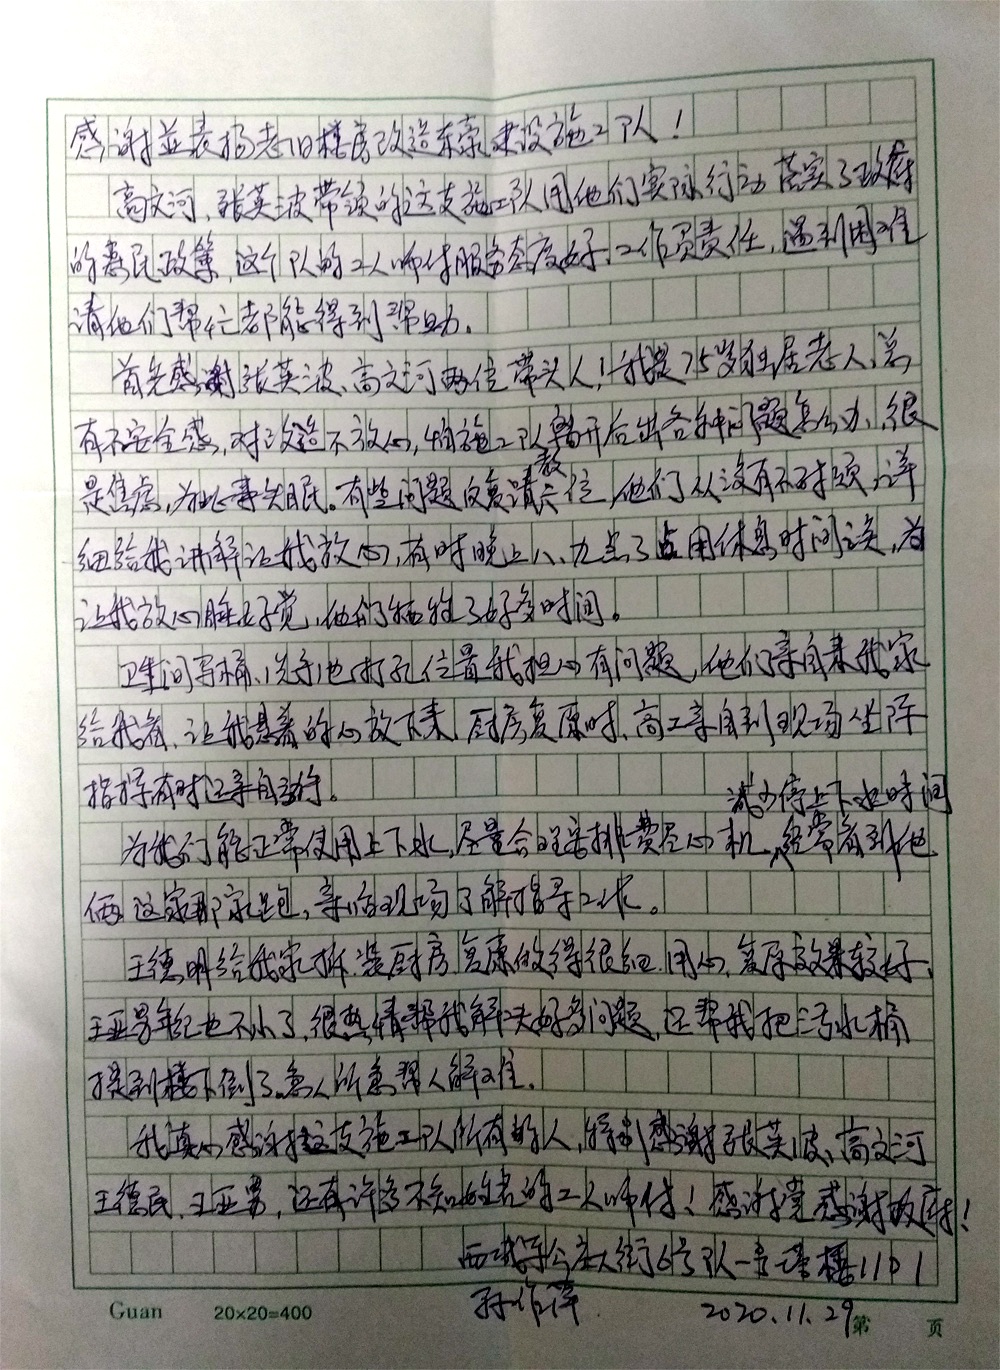 感谢并表扬老旧楼房改造东荣建设施工队！
高文河、张英波带领的这支施工队用他们实际行动落实了政府
的惠民政策，这个队的工人师付服务态度好，工作负责任，遇到困难
请他们帮忙都能得到帮助。
首先感谢张英波、高文河两位带头人！我是75岁独居老人，总
有不安全感，对改造不放心，怕施工队离开后出各种问题怎么办，很
是焦虑，为此事失眠。有些问题反复请教二位，他们从没有不耐烦，详
细给我讲解让我放心，有时晚上八、九点了占用休息时间谈，为
让我放心睡好觉，他们牺牲了好多时间。
卫生间马桶、洗手池打孔位置我担心有问题，他们亲自来我家
给我看，让我悬着的心放下来，厨房复原时，高工亲自到现场坐阵
指挥有时还亲自动行。
减少停上下水时间
为我们能正常使用上下水，尽量合理安排费尽心机，经常看到他
俩这家那家跑，亲临现场了解指导工作。
王德明给我家拆装厨房复原做得很细用心，复原效果较好，
王亚男年纪也不小了，很热情帮我解决好多问题，还帮我把污水桶
提到楼下倒了。急人所急帮人解难。
我真心感谢这支施工队所有的人，特别感谢张英波、高文河
王德民、王亚男，还有许多不知姓名的工人师付！感谢党感谢政府！
西城区大街6号队一号塔楼1101
孙作萍
2020.11.29
Guan 20×20=400 第 页